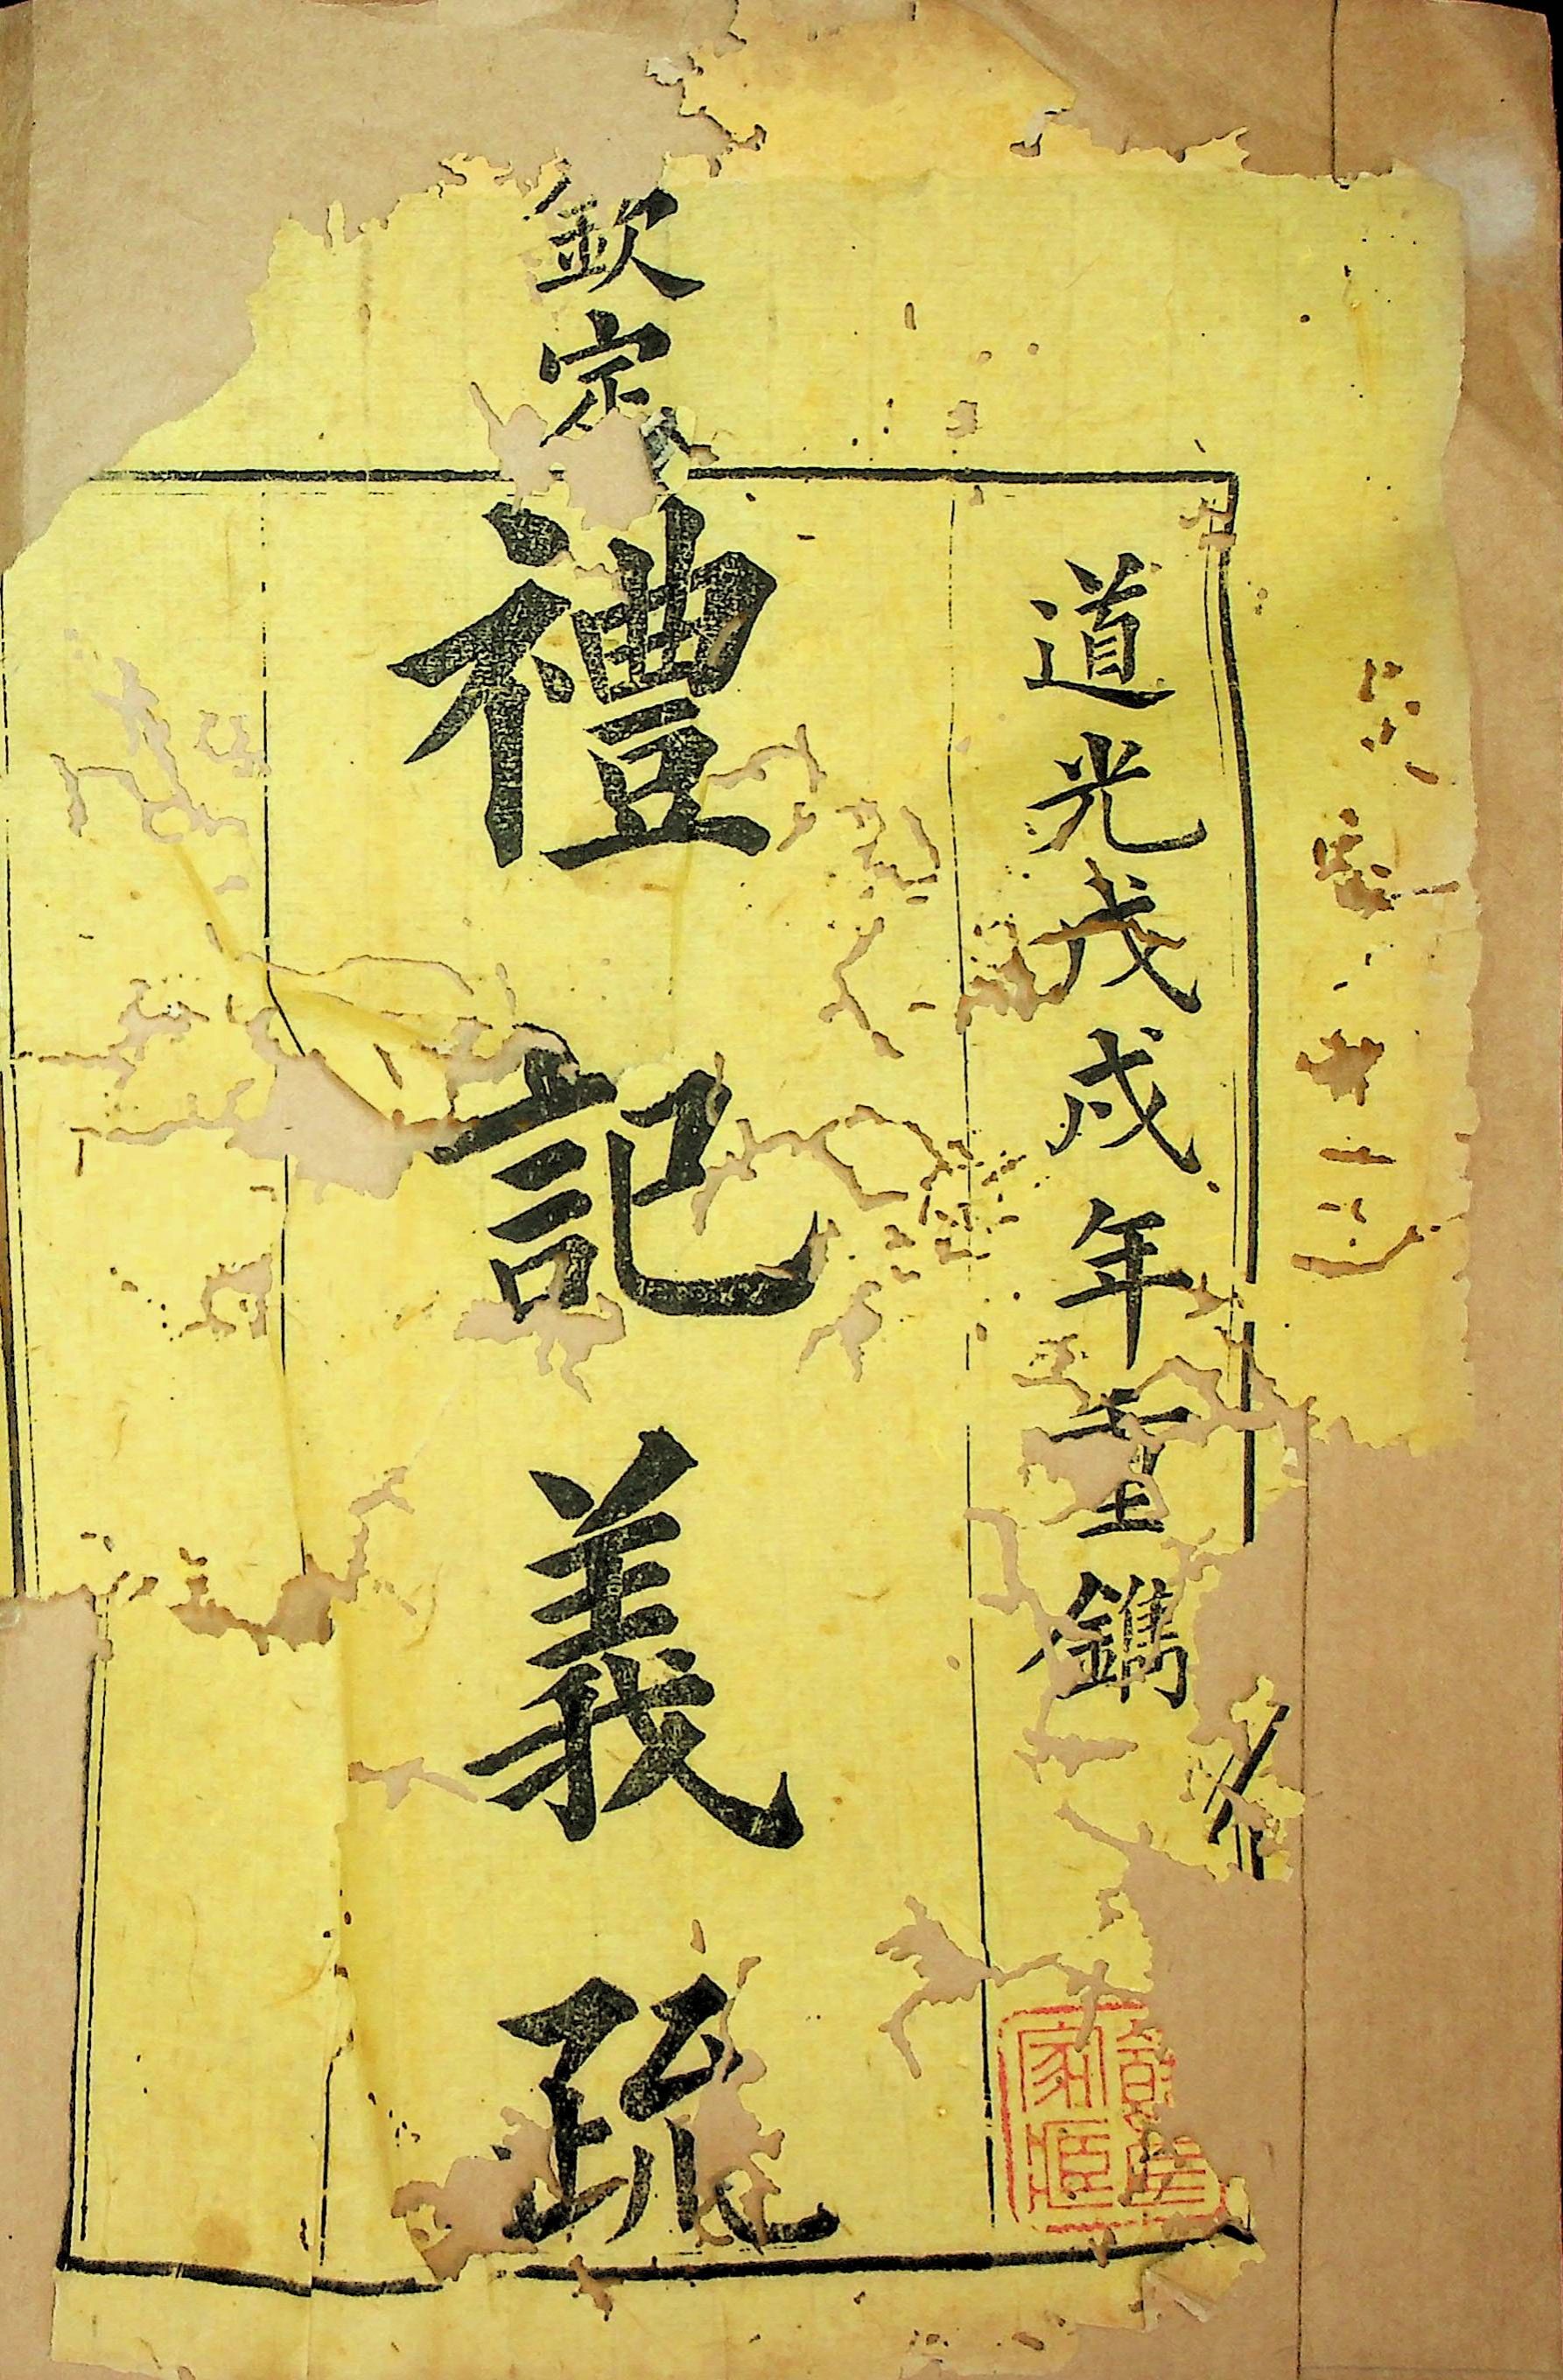 道光戊戌年重鐫
欽定
禮記義疏